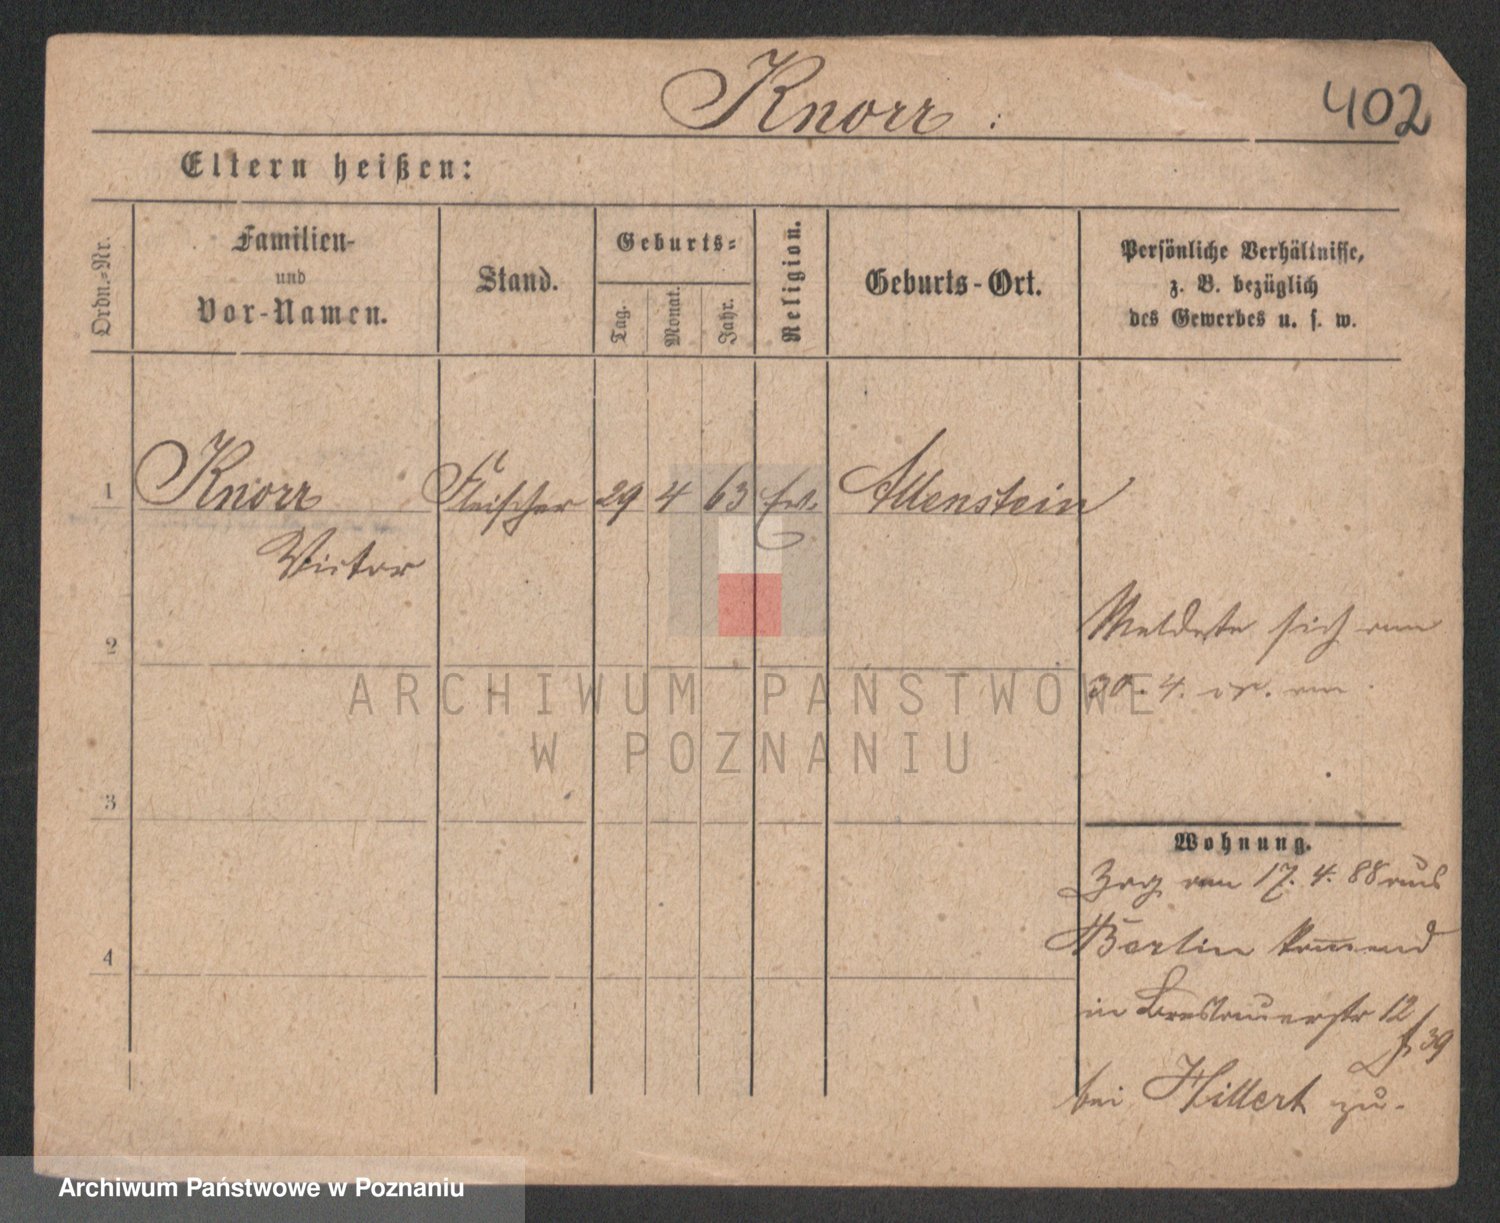 Knorr.
402
Eltern heißen:
Ordn.-Nr.
Familien-
und
Vor-Namen.
Stand.
Geburts-
Tag.
Monat.
Jahr.
Religion.
Geburts-Ort.
Persönliche Verhältnisse,
z. B. bezüglich
des Gewerbes u. s. w.
1 Knorr Fleischer 29 4 63 Ev. Allenstein
Victor
Meldete sich am
30. 4. cr. an
2
3
4
Wohnung.
Zog am 17. 4. 88 aus
Berlin kommend
in Breslauerstr 12
39
bei Hillert zu.
ARCHIWUM PAŃSTWOWE
W POZNANIU
Archiwum Państwowe w Poznaniu